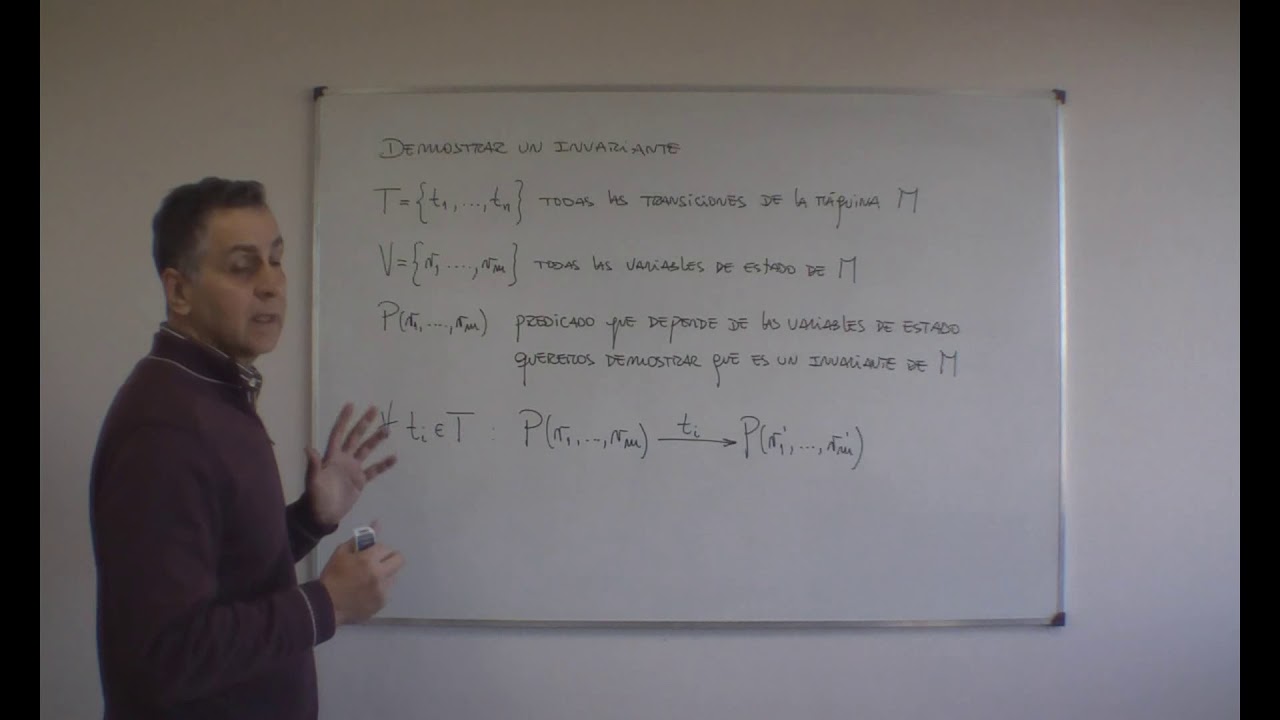 DEMOSTRAR UN INVARIANTE
T = {t₁, ..., tₙ} TODAS LAS TRANSICIONES DE LA MÁQUINA M
V = {v₁, ..., vₘ} TODAS LAS VARIABLES DE ESTADO DE M
P(v₁, ..., vₘ) PREDICADO QUE DEPENDE DE LAS VARIABLES DE ESTADO
QUEREMOS DEMOSTRAR QUE ES UN INVARIANTE DE M
∀ tᵢ ∈ T : P(v₁, ..., vₘ) —tᵢ→ P(v₁', ..., vₘ')